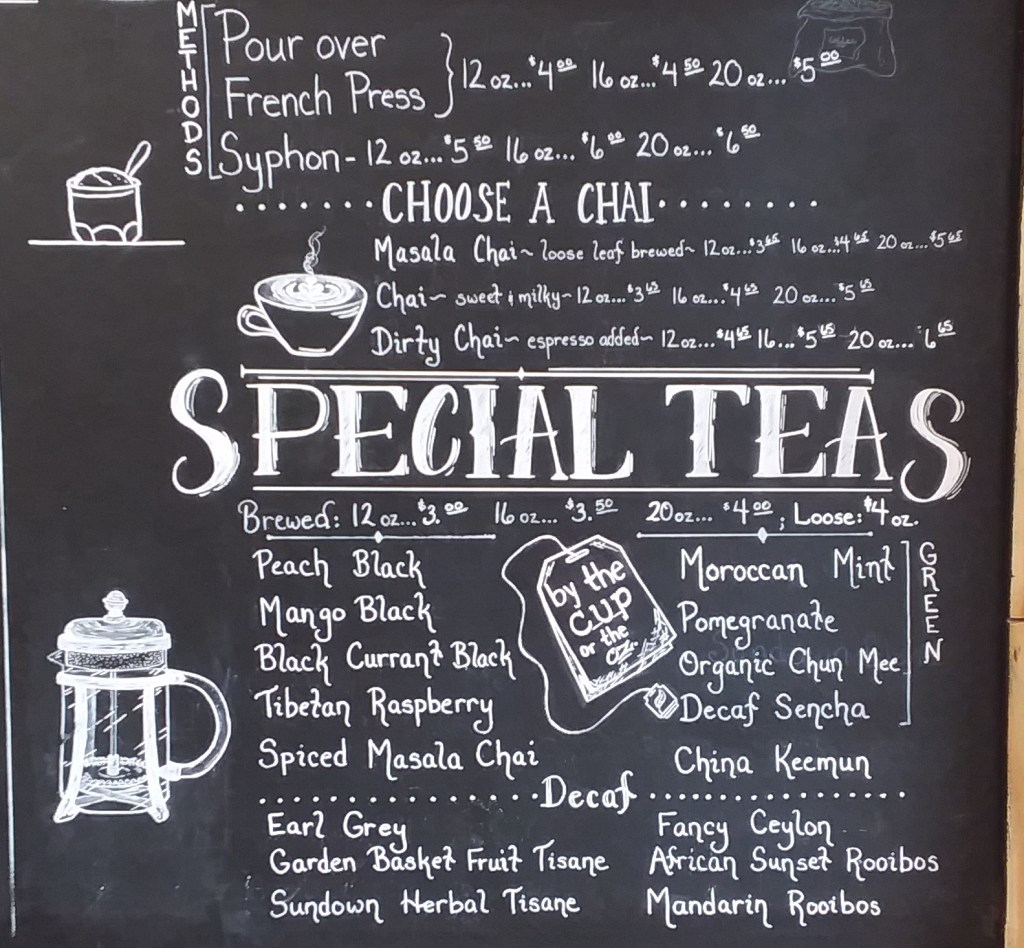 METHODS
Pour over
French Press
12 oz...$4.00 16 oz...$4.50 20 oz...$5.00
Syphon- 12 oz...$5.50 16 oz...$6.00 20 oz...$6.50
CHOOSE A CHAI
Masala Chai~ loose leaf brewed~ 12 oz...$3.65 16 oz...$4.65 20 oz...$5.65
Chai~ sweet & milky~ 12 oz...$3.65 16 oz...$4.65 20 oz...$5.65
Dirty Chai~ espresso added~ 12 oz...$4.65 16...$5.65 20 oz...$6.65
SPECIAL TEAS
Brewed: 12 oz...$3.00 16 oz...$3.50 20 oz...$4.00; Loose: $4 oz.
Peach Black
Mango Black
Black Currant Black
Tibetan Raspberry
Spiced Masala Chai
by the
cup
or the
oz.
Moroccan Mint
Pomegranate
Organic Chun Mee
Decaf Sencha
GREEN
China Keemun
Decaf
Earl Grey
Fancy Ceylon
Garden Basket Fruit Tisane
African Sunset Rooibos
Sundown Herbal Tisane
Mandarin Rooibos